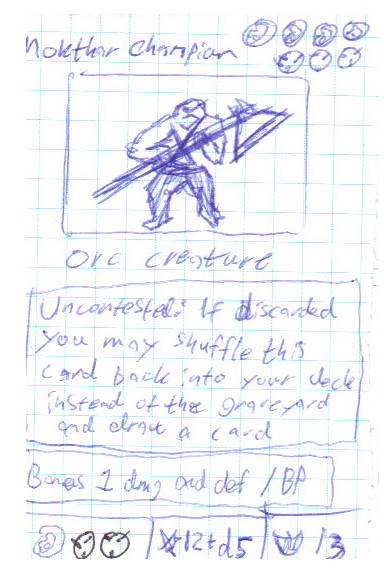 Mokthar Champion
Orc creature
Uncontested: If discarded
you may shuffle this
card back into your deck
instead of the graveyard
and draw a card
Bonus 1 dmg and def / BP
12+d5
13